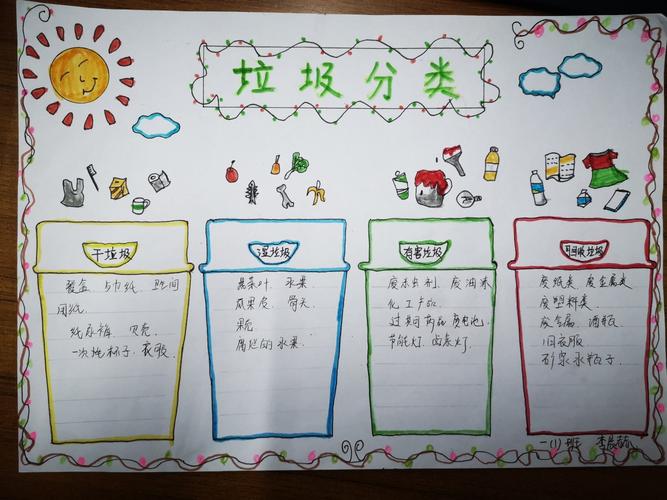 垃圾分类
干垃圾
餐盒 与巾纸 卫生间
用纸
纸尿裤 贝壳
一次抛杯子、衣服
湿垃圾
菜叶 水果
瓜果皮 骨头
果
腐烂的水果
有害垃圾
废杀虫剂、废油漆
化工产品
过期药品 废电池
节能灯、卤素灯
可回收垃圾
废纸类 废金属类
废塑料类
废金属、酒瓶
旧衣服
矿泉水瓶子
一(1)班